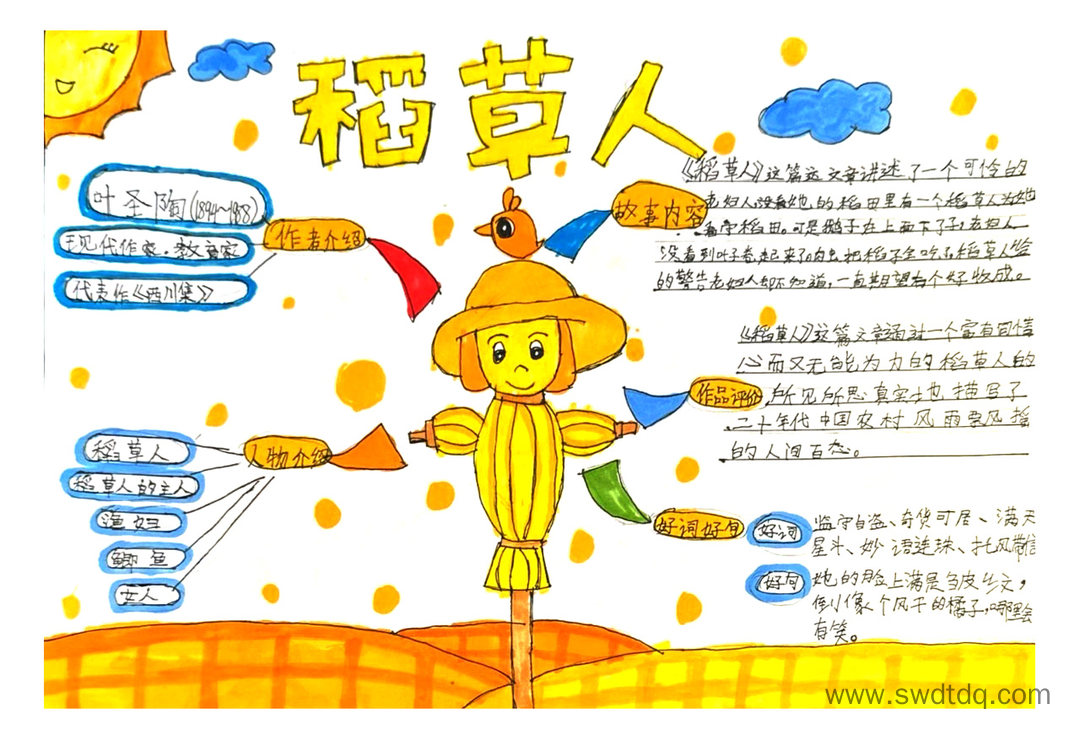 稻草人
叶圣陶(1894~1988)
现代作家·教育家
代表作《西川集》
作者介绍
故事内容
《稻草人》这篇文章讲述了一个可怜的
老妇人没看她的稻田里有一个稻草人为她
看守稻田,可是蛾子在上面下了子,老妇人
没看到叶子卷起来了,肉虫把稻子全吃了,稻草人
的警告老妇人却不知道,一直期望有个好收成。
作品评价
《稻草人》这篇文章通过一个富有同情
心而又无能为力的稻草人的
所见所思真实地描写了
二十年代中国农村风雨飘摇
的人间百态。
人物介绍
稻草人
稻草人的主人
渔妇
鲫鱼
女人
好词好句
好词
监守自盗、奇货可居、满天
星斗、妙语连珠、托风带信
好句
她的脸上满是皱纹,
倒像个风干的橘子,哪里会
有笑。
www.swdtdq.com